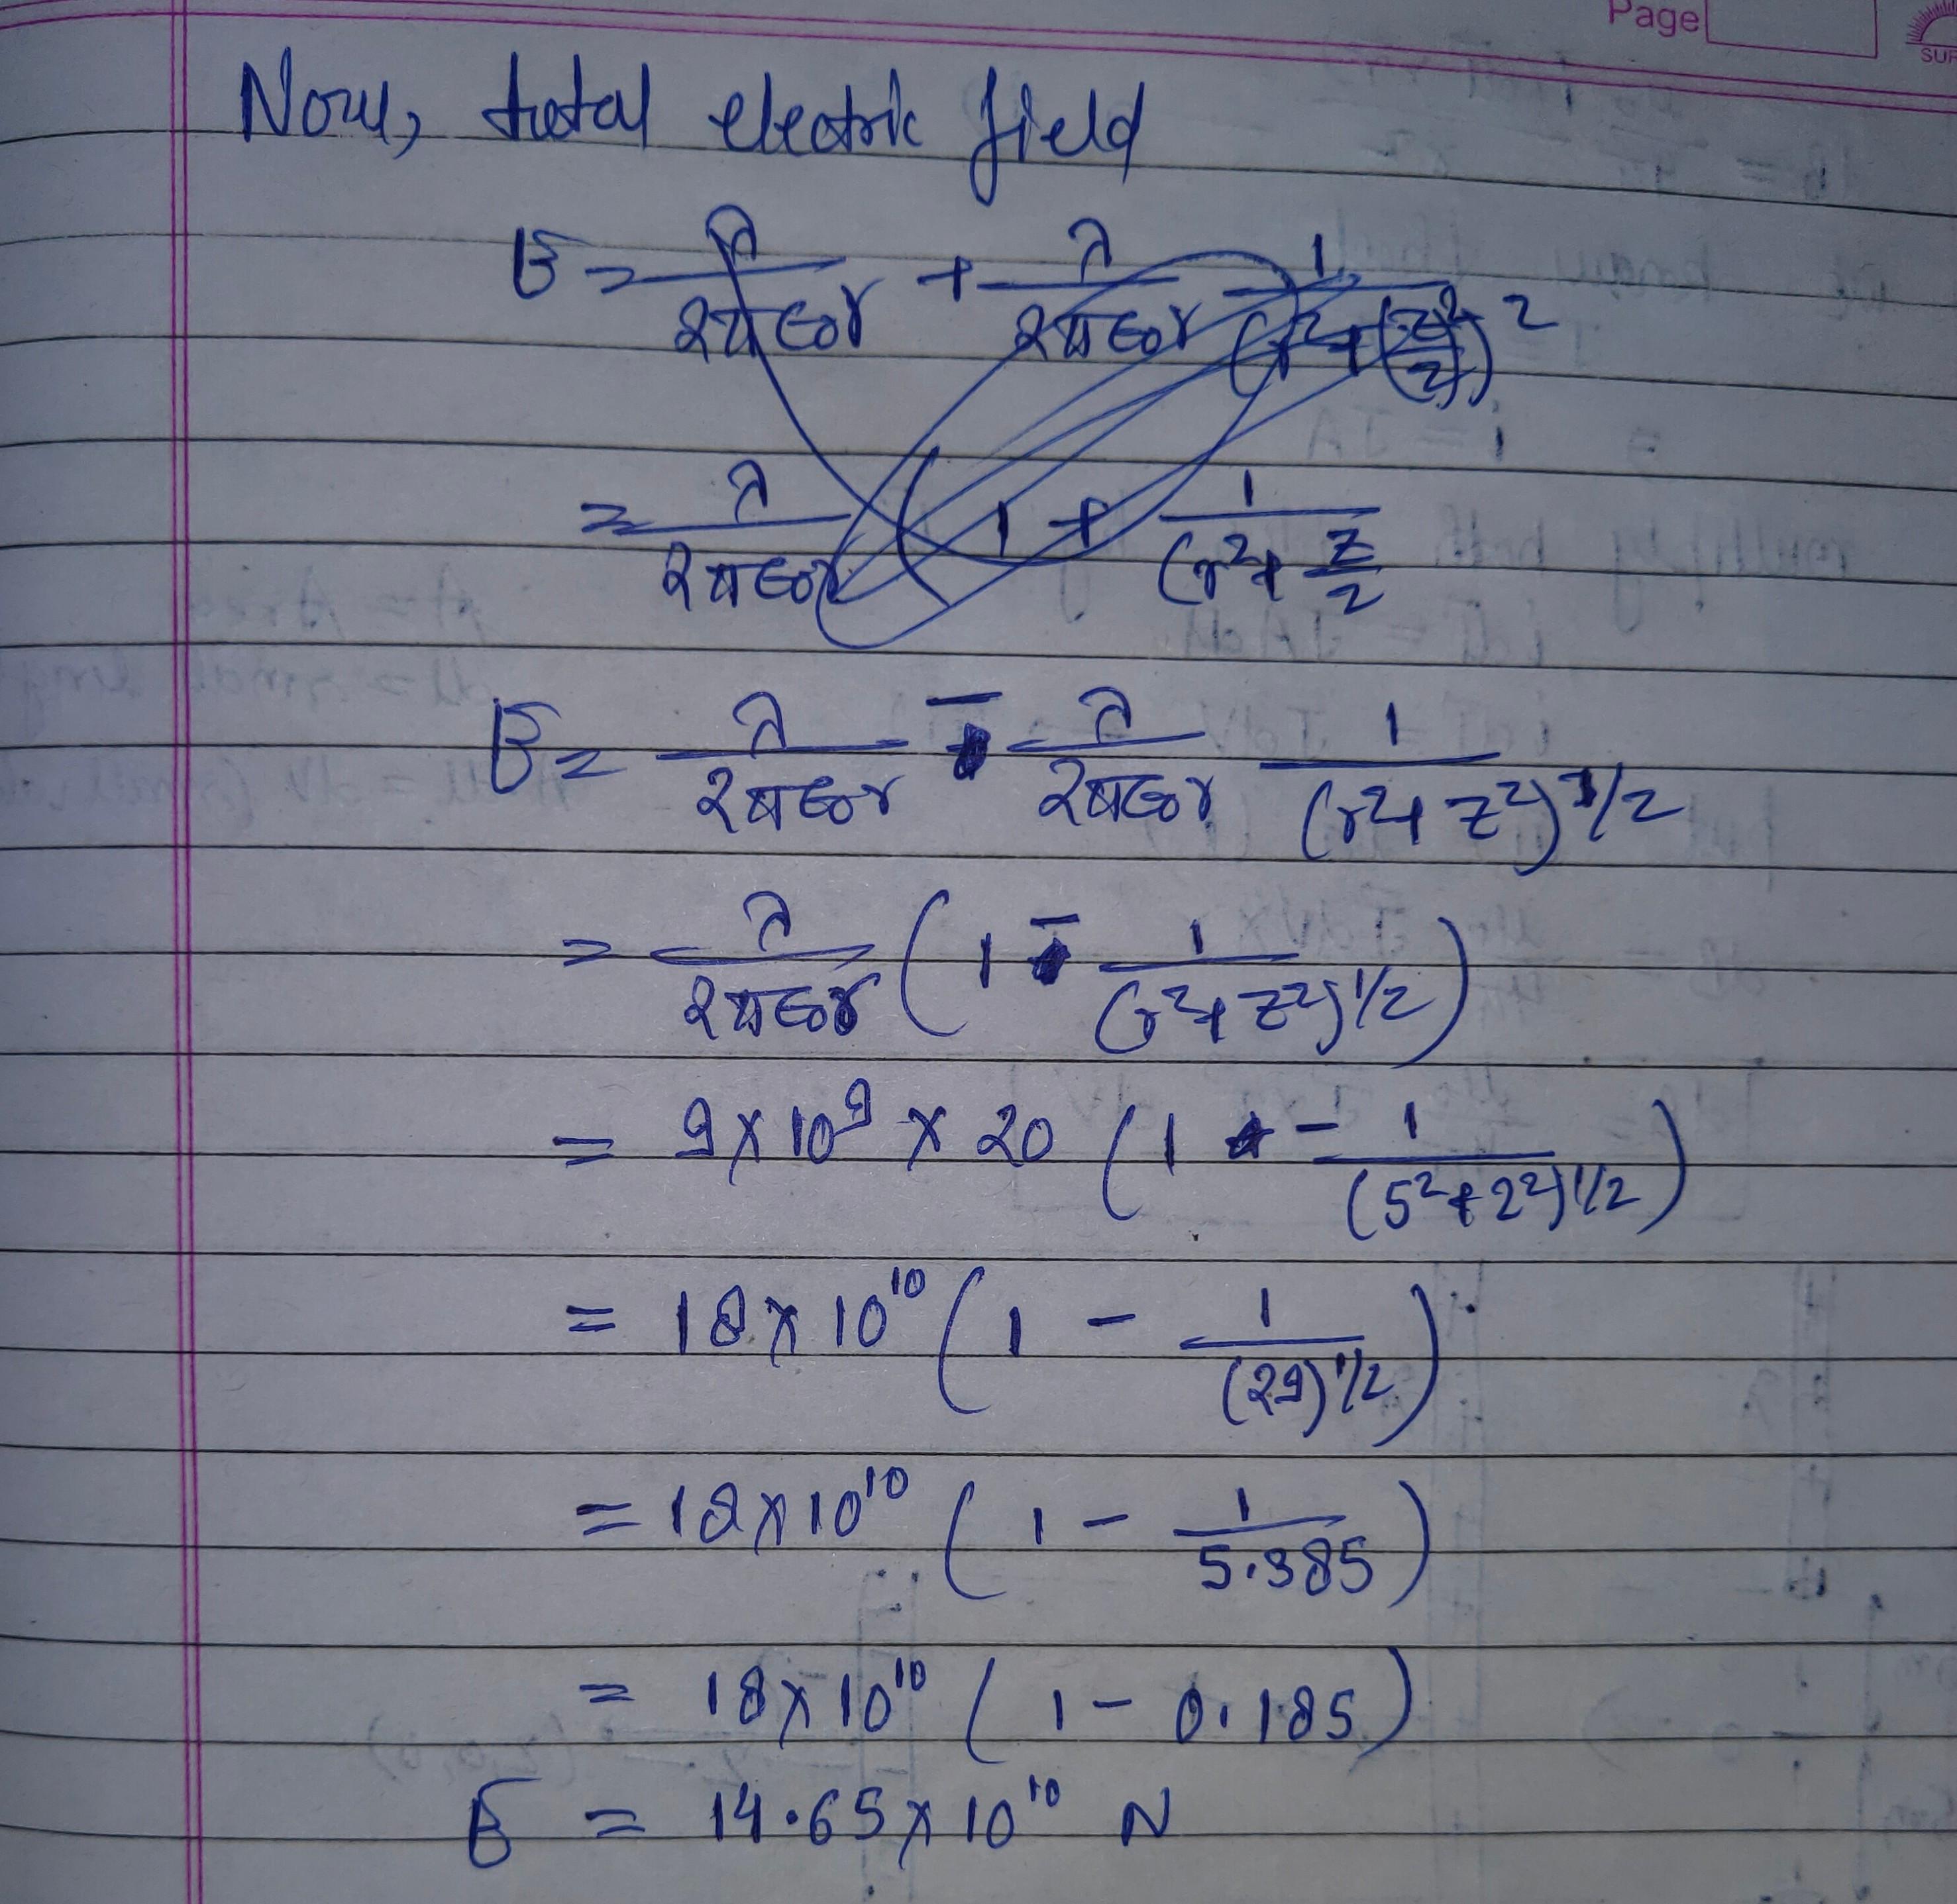 Page
SUP
Now, total electric field
E = λ/2πε₀r + λ/2πε₀r 1/(r²+(z/2)²)²
= λ/2πε₀r (1 + 1/(r²+ z/2
E = λ/2πε₀r - λ/2πε₀r 1/(r²+z²)^1/2
= λ/2πε₀r (1 - 1/(r²+z²)^1/2)
= 9×10⁹ × 20 (1 - 1/(5²+2²)^1/2)
= 18×10¹⁰ (1 - 1/(29)^1/2)
= 18×10¹⁰ (1 - 1/5.385)
= 18×10¹⁰ (1 - 0.185)
E = 14.65×10¹⁰ N